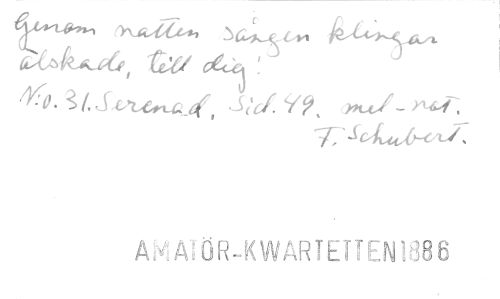 Genom natten sången klingar
älskade, till dig!
N:o. 31. Serenad. Sid. 49. mel-not.
F. Schubert.
AMATÖR-KWARTETTEN 1886